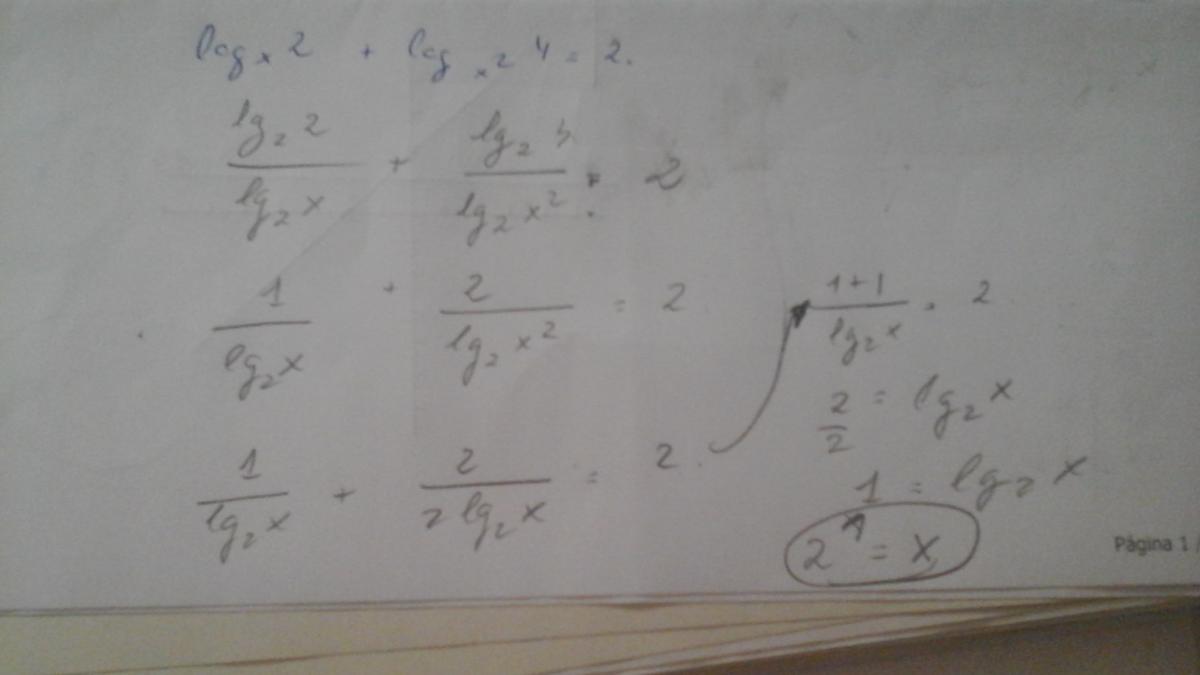 log_x 2 + log_{x^2} 4 = 2.
\frac{lg_2 2}{lg_2 x} + \frac{lg_2 4}{lg_2 x^2} = 2
\frac{1}{lg_2 x} + \frac{2}{lg_2 x^2} = 2
\frac{1}{lg_2 x} + \frac{2}{2 lg_2 x} = 2.
\frac{1+1}{lg_2 x} = 2
\frac{2}{2} = lg_2 x
1 = lg_2 x
2^1 = x
Página 1 /